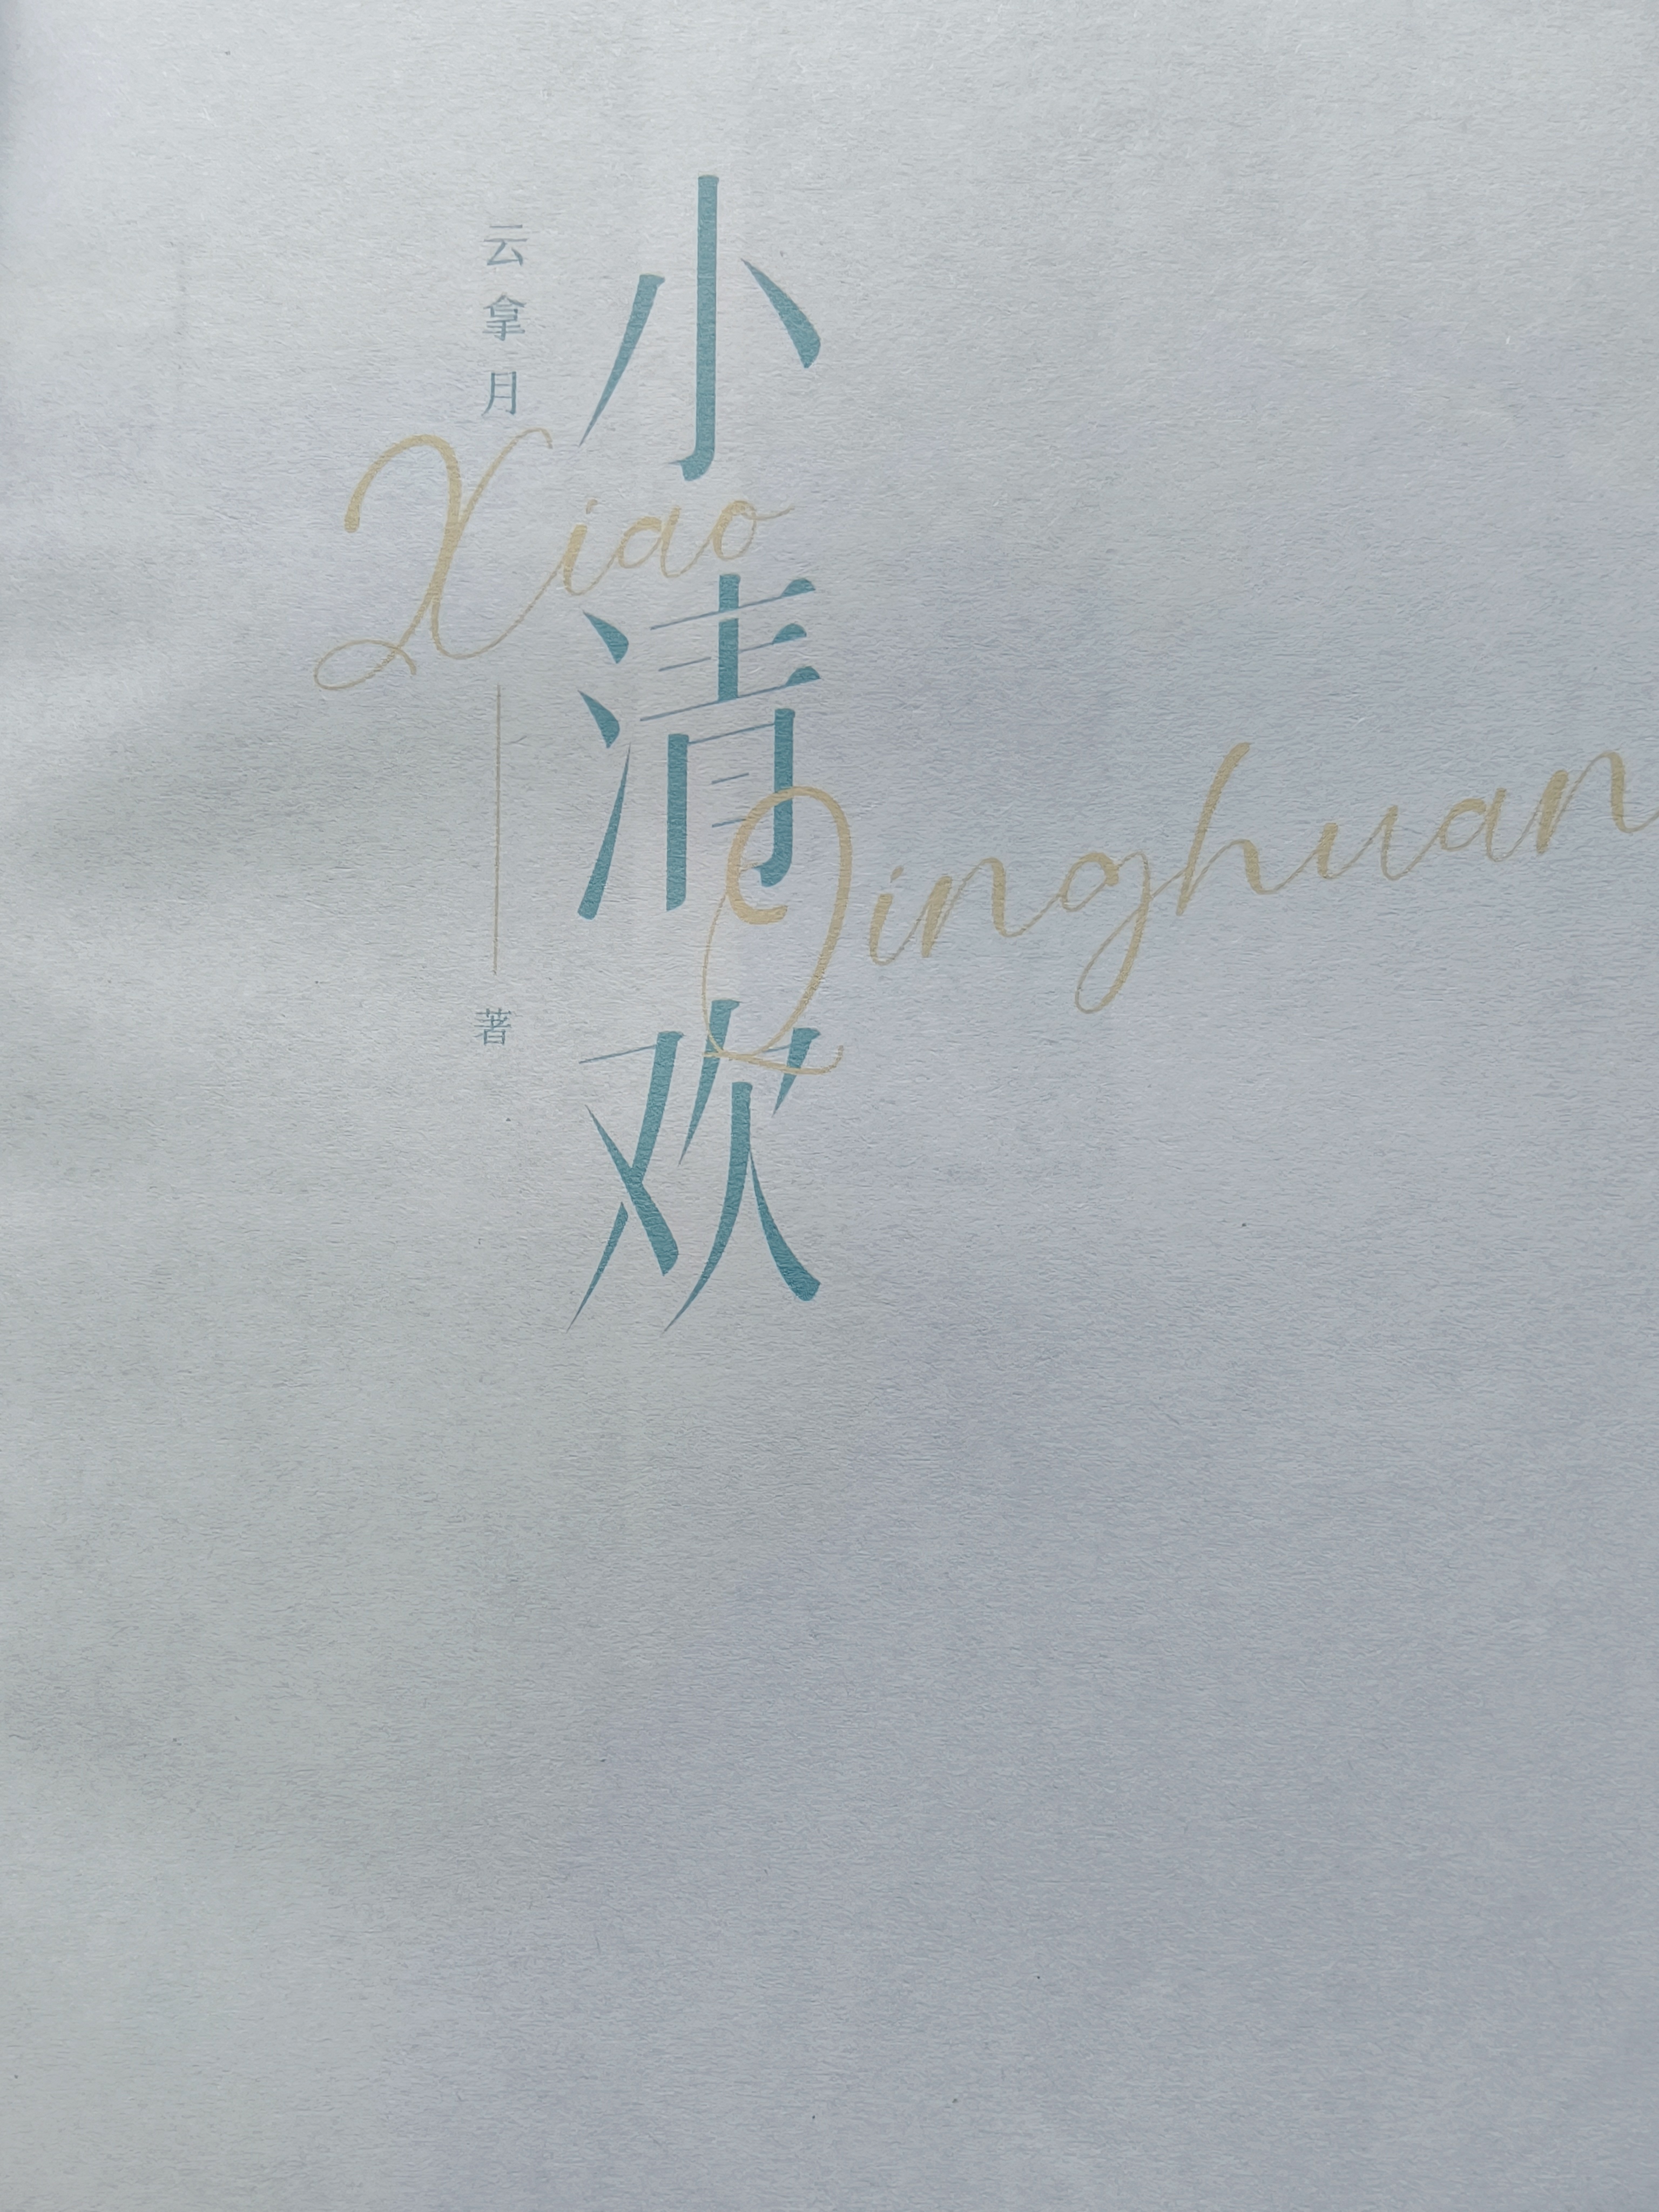 小清欢
云拿月
著
Xiao
Qinghuan